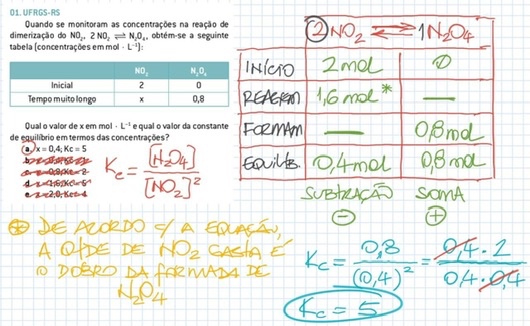 01. UFRGS-RS
Quando se monitoram as concentrações na reação de
dimerização do NO₂, 2 NO₂ ⇌ N₂O₄, obtém-se a seguinte
tabela (concentrações em mol · L⁻¹):
NO₂ N₂O₄
Inicial 2 0
Tempo muito longo x 0,8
Qual o valor de x em mol · L⁻¹ e qual o valor da constante
de equilíbrio em termos das concentrações?
a x = 0,4; Kc = 5
d x = 1,6; Kc = 5
e x = 2,0; Kc = 4
Kc = [N₂O₄] / [NO₂]²
2NO₂ ⇌ 1N₂O₄
INÍCIO 2 mol 0
REAGEM 1,6 mol* —
FORMAM — 0,8 mol
EQUILÍB. 0,4 mol 0,8 mol
SUBTRAÇÃO SOMA
− +
* DE ACORDO C/ A EQUAÇÃO,
A QTDE DE NO₂ GASTA É
O DOBRO DA FORMADA DE
N₂O₄
Kc = 0,8 / (0,4)² = 0,4 · 2 / 0,4 · 0,4
Kc = 5